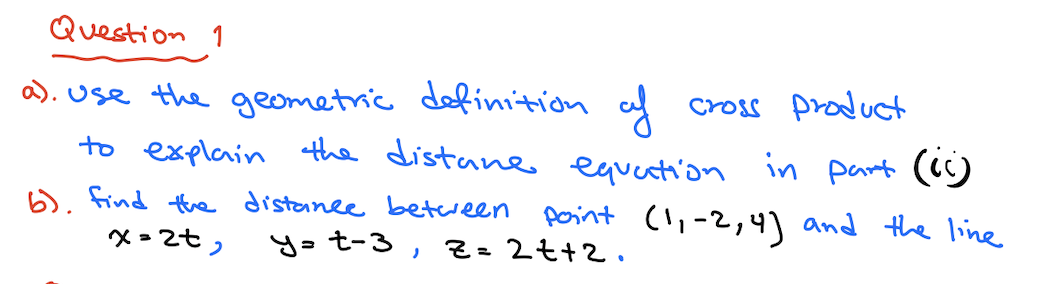 Question 1
a). use the geometric definition of cross product
to explain the distane equation in part (ii)
b). find the distance between point (1,-2,4) and the line
x=2t, y=t-3, z=2t+2.